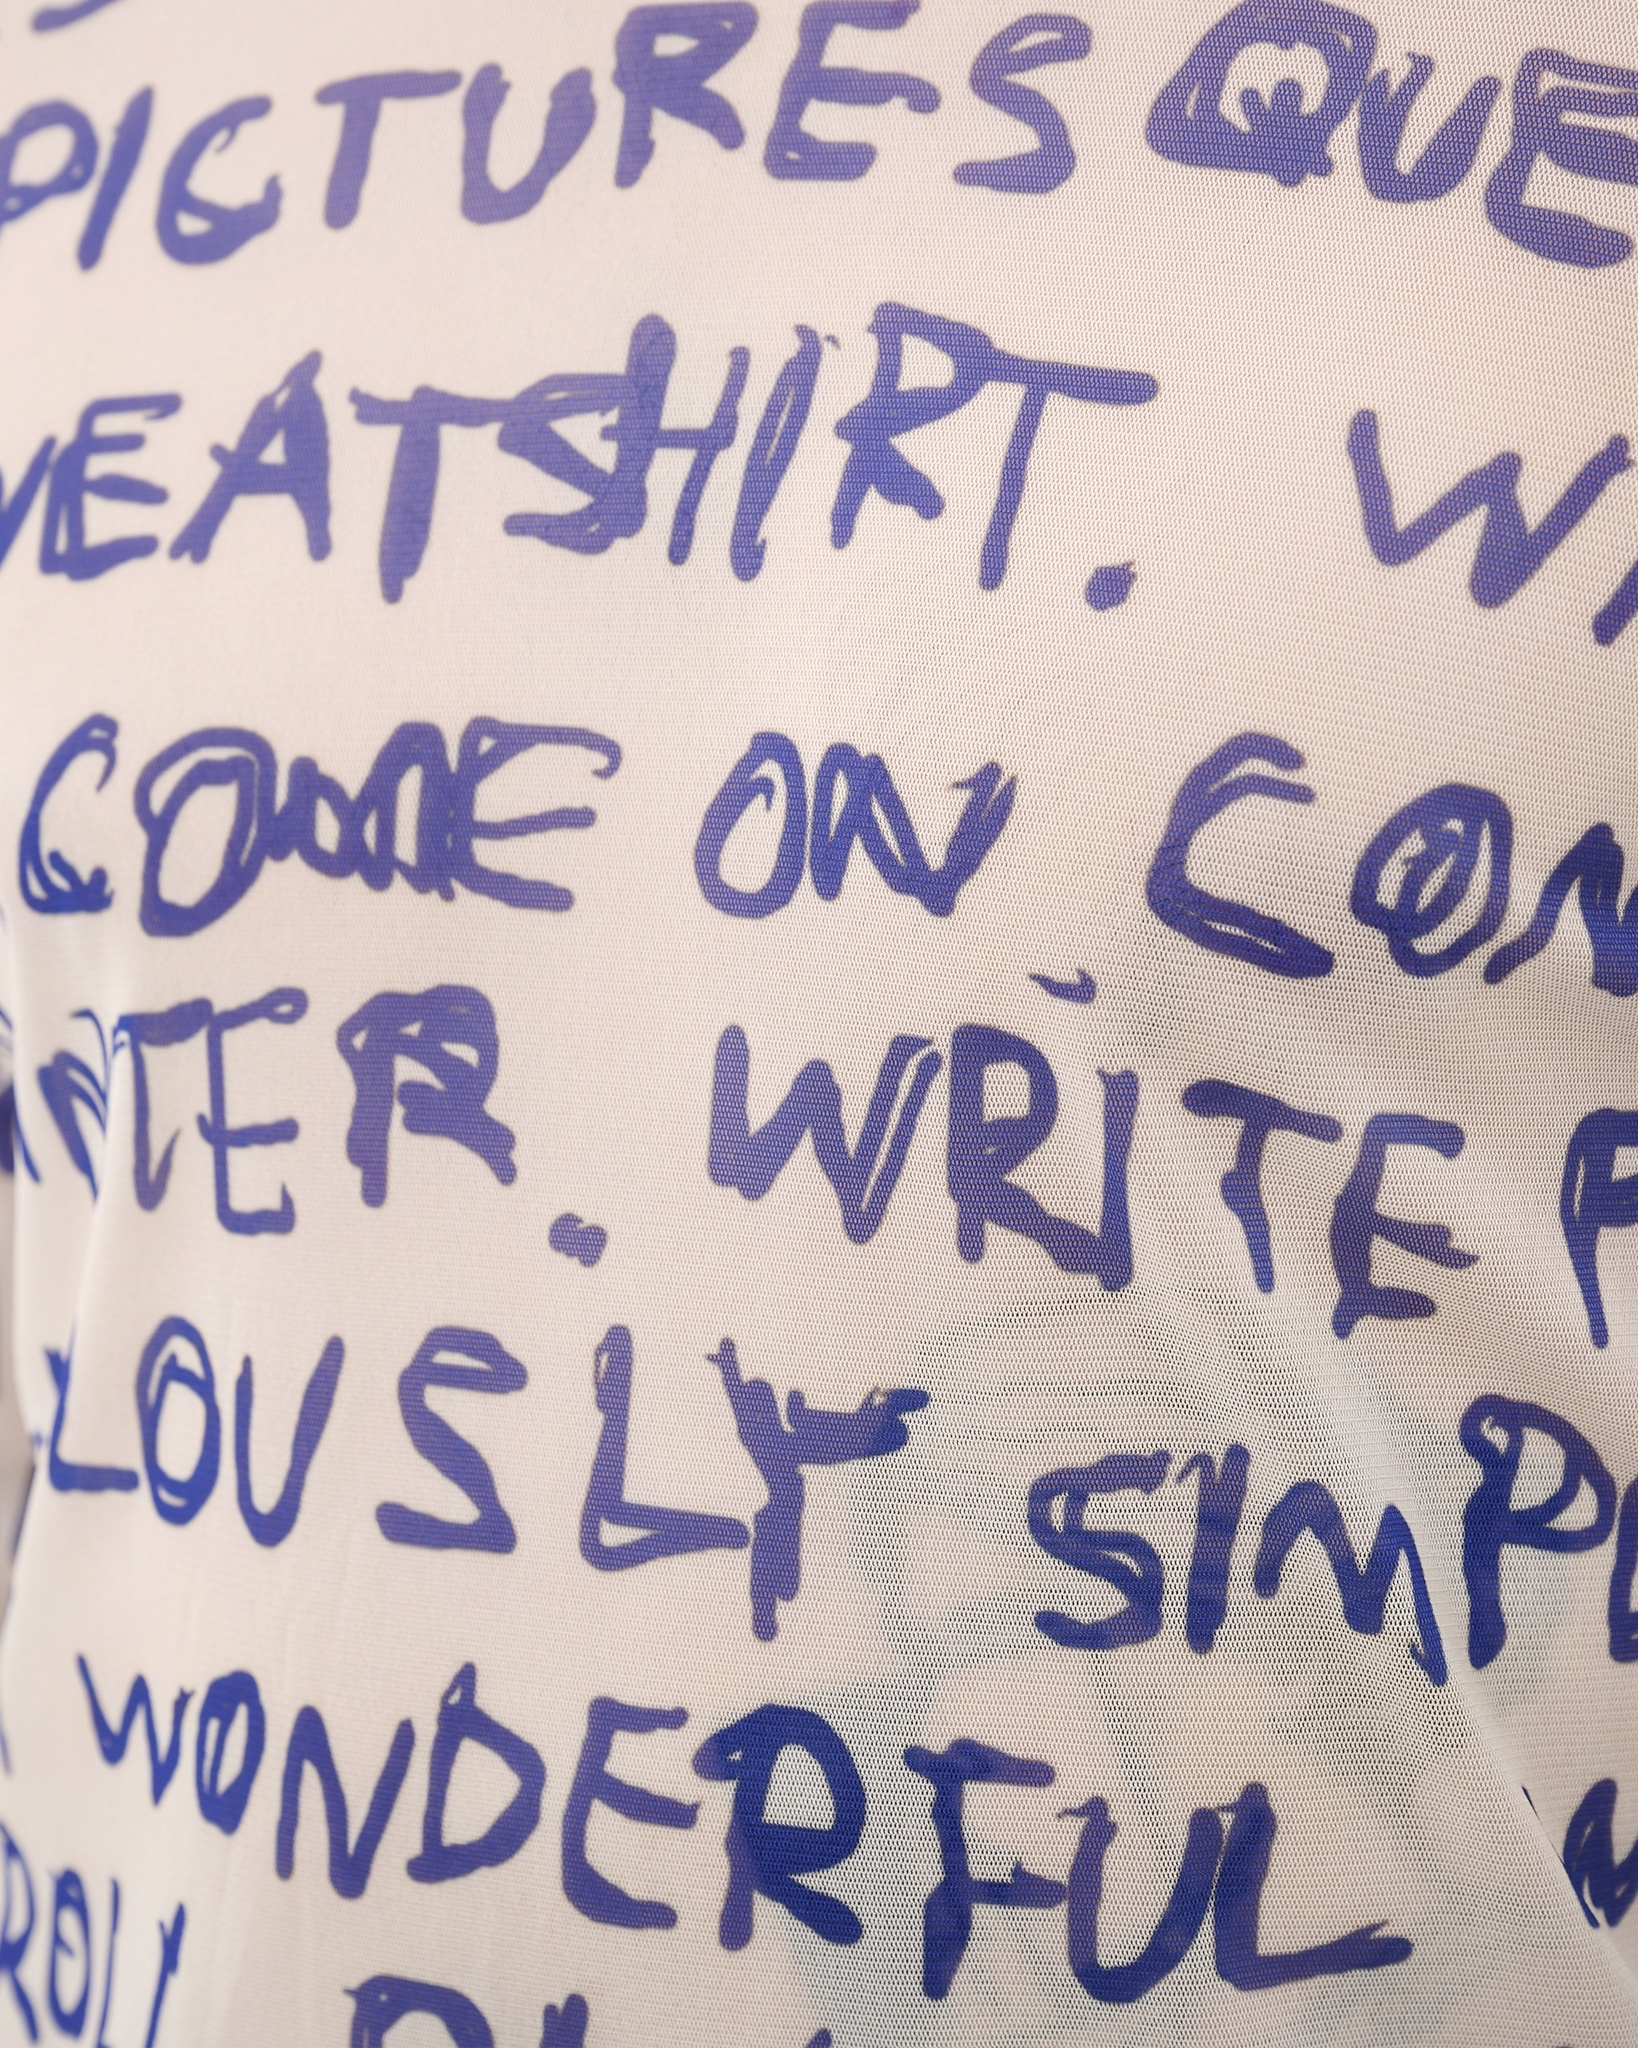 PICTURESQUE
WEATSHIRT. WI
COME ON COM
NTER. WRITE F
LOUSLY SIMPL
WONDERFUL
ROLY